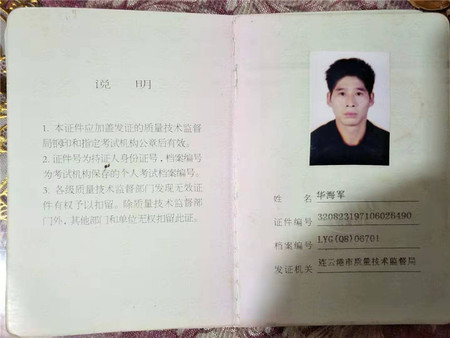 说 明
1. 本证件应加盖发证的质量技术监督
局钢印和指定考试机构公章后有效。
2. 证件号为持证人身份证号，档案编号
为考试机构保存的个人考试档案编号。
3. 各级质量技术监督部门发现无效证
件有权予以扣留。除质量技术监督部
门外，其他部门和单位无权扣留此证。
姓 名 华海军
证件编号 320823197106026490
档案编号 LYG(QB)06701
发证机关 连云港市质量技术监督局